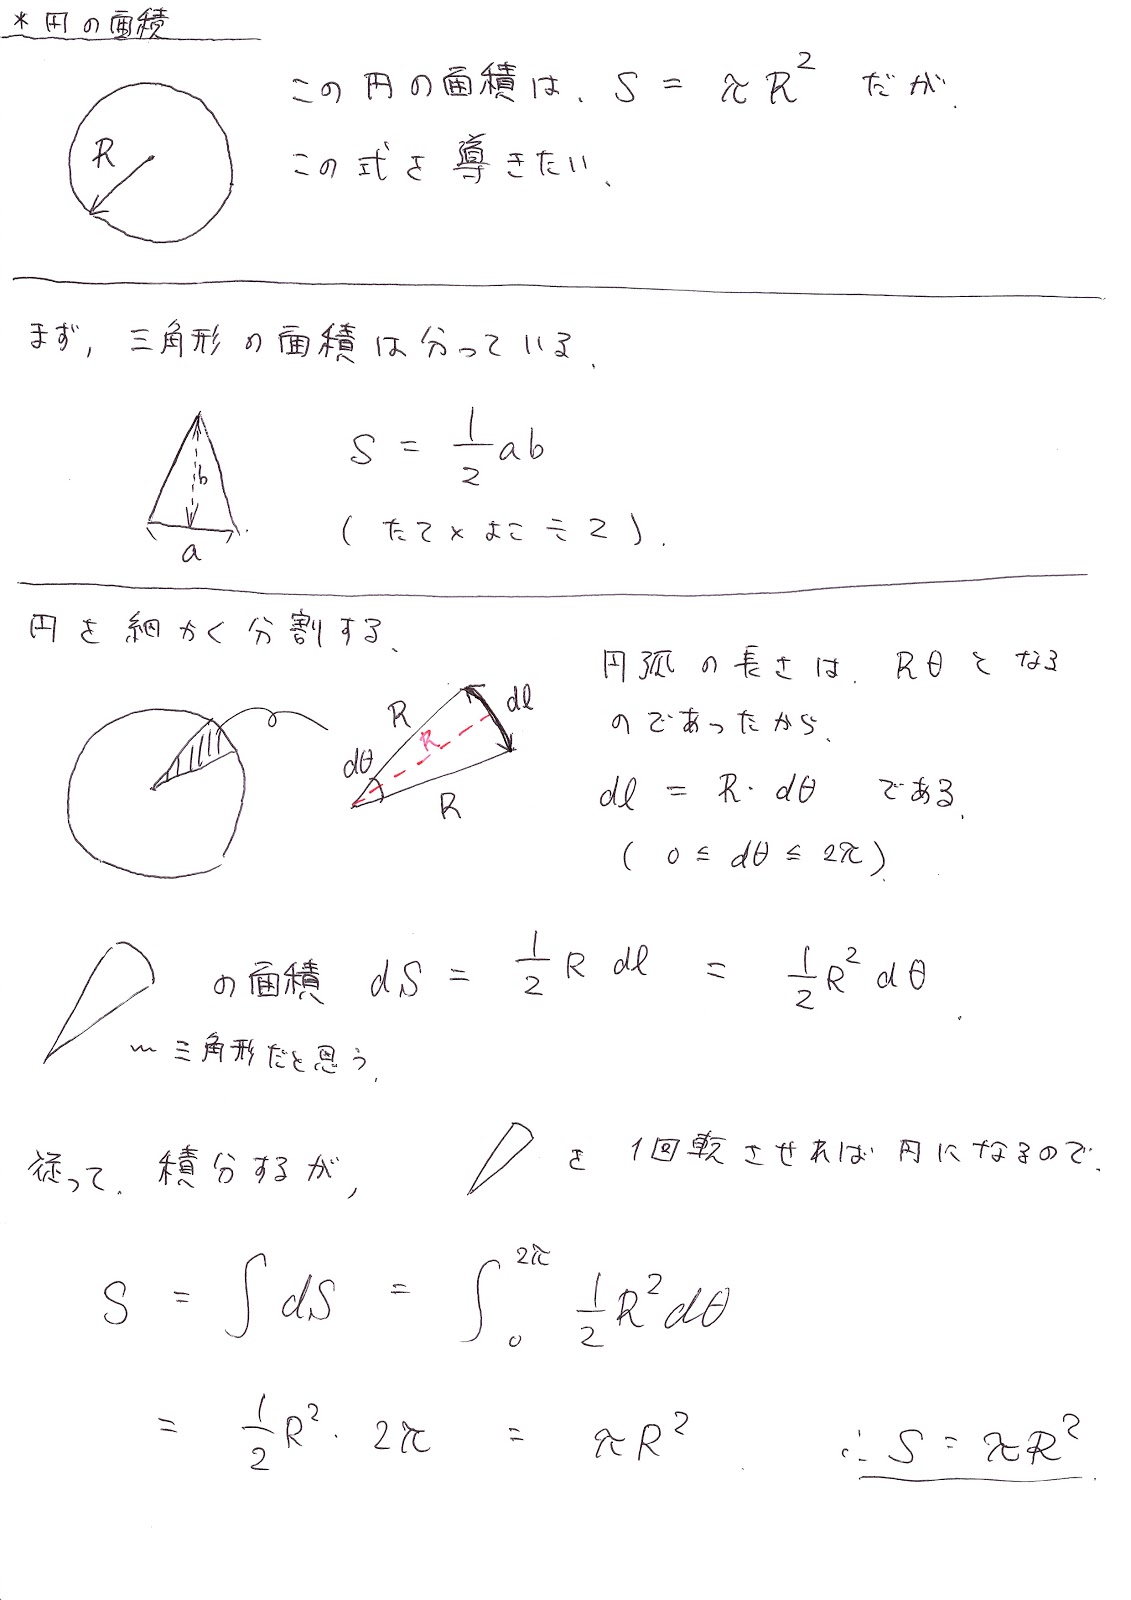 * 円の面積
この円の面積は、S = πR² だが、
R
この式を導きたい、
まず、三角形の面積は分っている、
S = 1/2 ab
b
a
(たて×よこ÷2).
円を細かく分割する、
円弧の長さは、Rθとなる
のであったから、
R
R
dl
dθ
R
dl = R・dθ である、
(0 ≦ dθ ≦ 2π)
の面積 dS = 1/2 R dl = 1/2 R² dθ.
〰三角形だと思う、
従って、積分するが、 を1回転させれば円になるので、
S = ∫dS = ∫₀^2π 1/2 R² dθ
= 1/2 R²・2π = πR². ∴ S = πR².